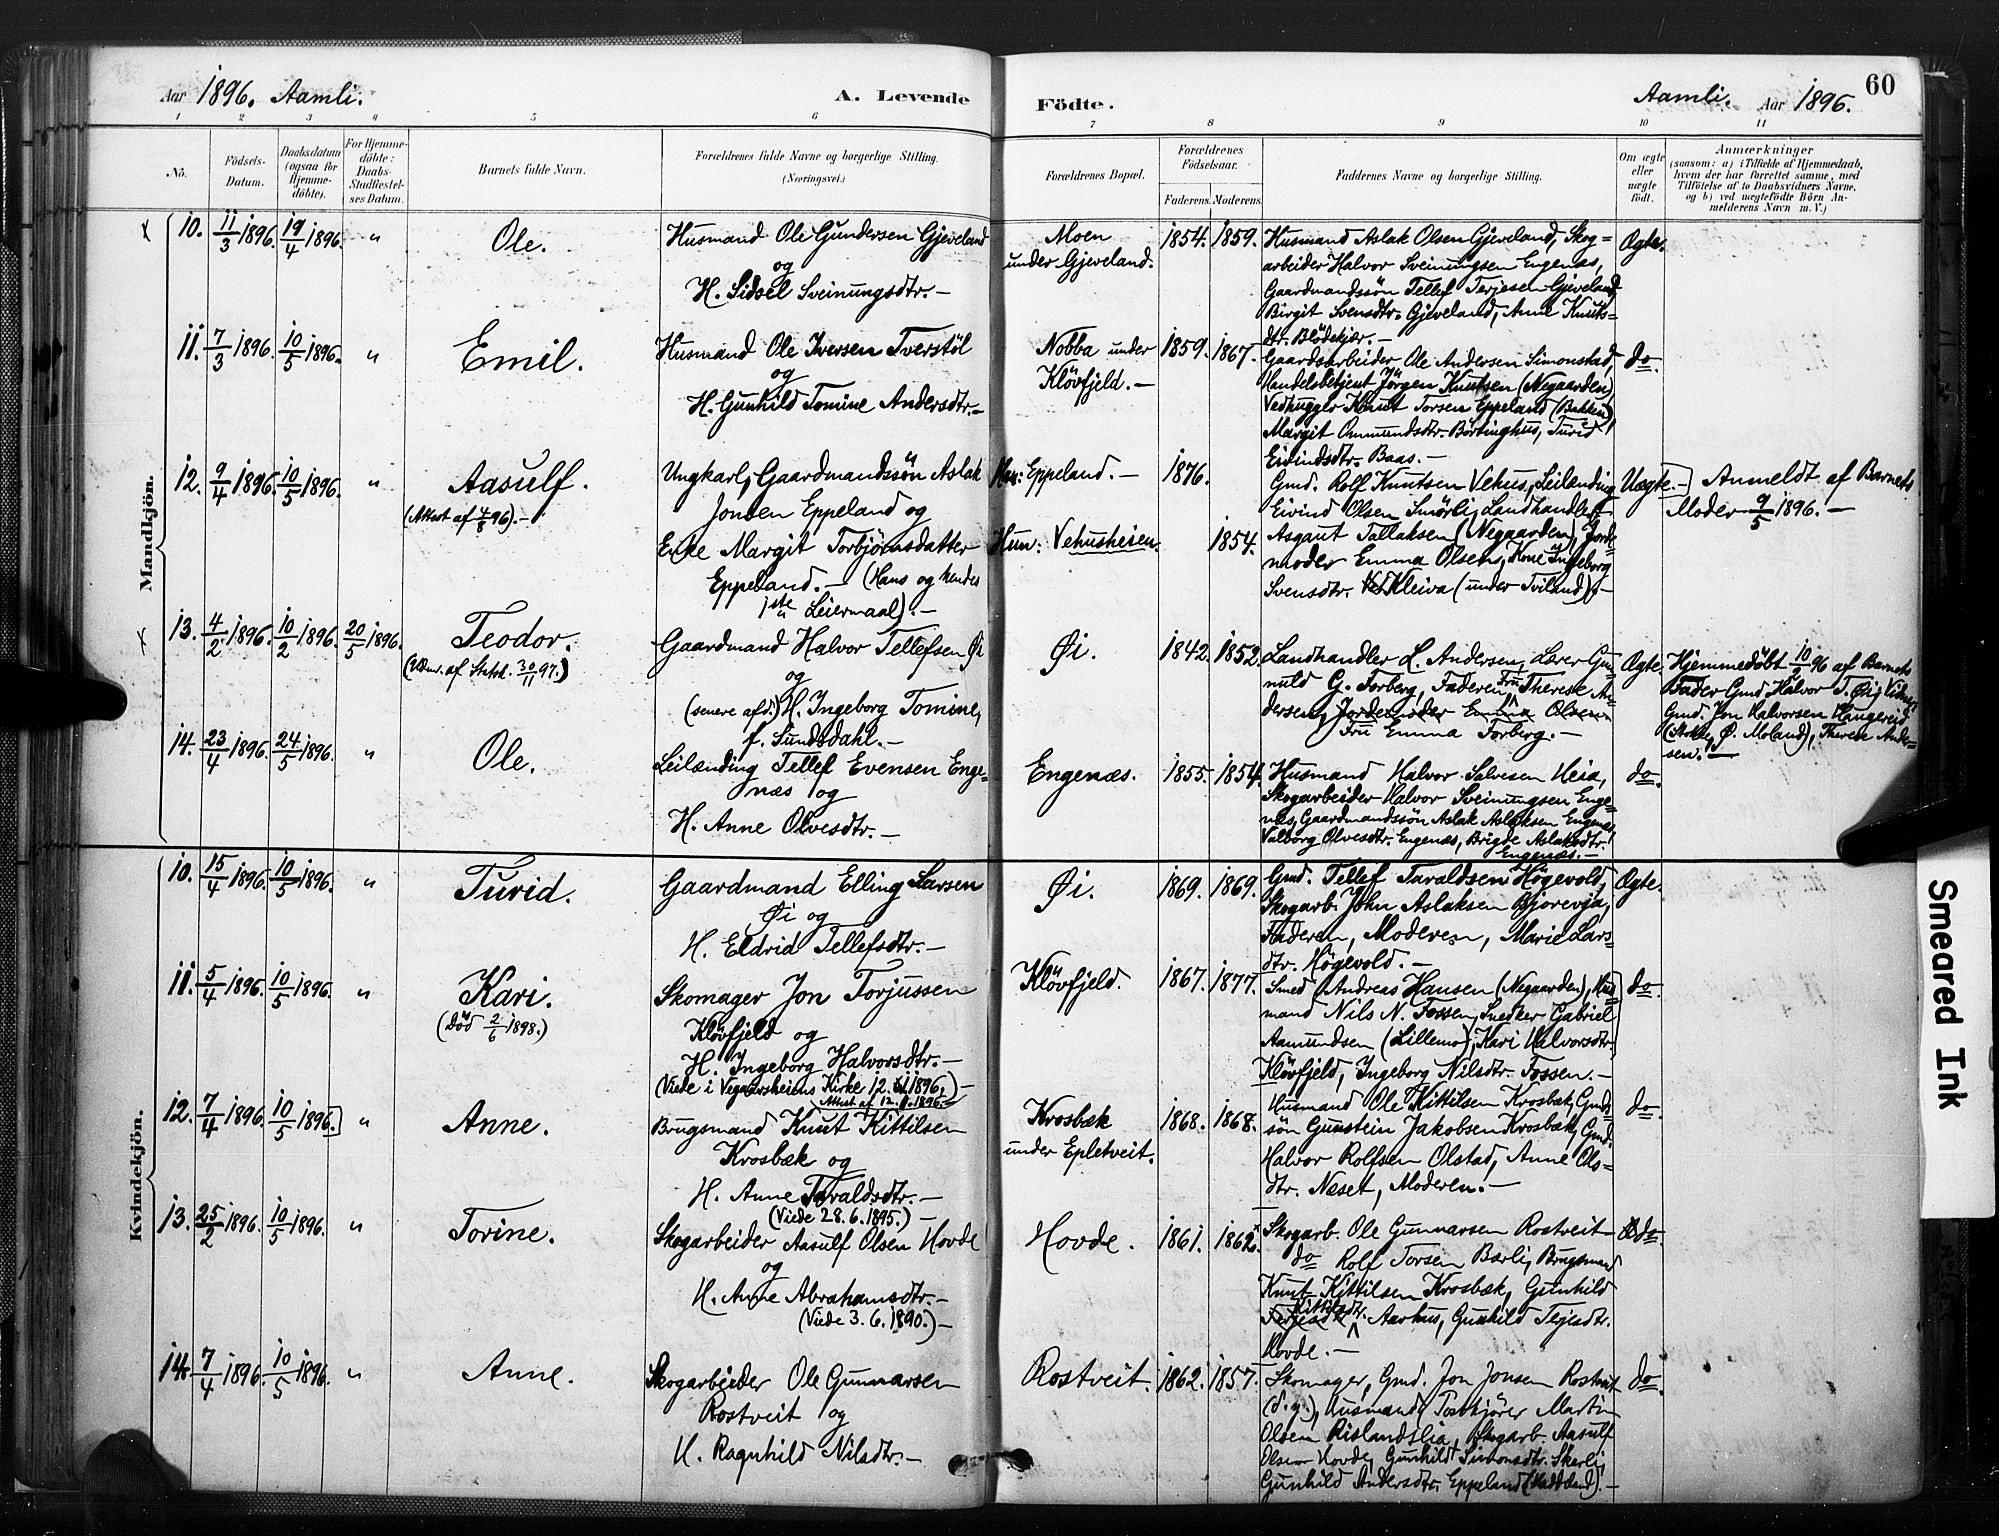 Aar 1896. Aamli. A. Levende
Födte. Aamli. Aar 1896. 60
1 2 3 4 5 6 7 8 9 10 11
No.
Födsels-
Datum.
Daabsdatum
(ogsaa for
Hjemme-
döbte).
For Hjemme-
döbte:
Daabs-
Stadfæstel-
ses Datum.
Barnets fulde Navn.
Forældrenes fulde Navne og borgerlige Stilling.
(Næringsvei.)
Forældrenes Bopæl.
Forældrenes
Födselsaar.
Faderens. Moderens.
Faddernes Navne og borgerlige Stilling.
Om ægte
eller
uægte
födt.
Anmærkninger
(saasom: a) i Tilfælde af Hjemmedaab,
hvem der har forrettet samme, med
Tilföielse af to Daabsvidners Navne,
og b) ved uægtefödte Börn An-
melderens Navn m. V.)
Mandkjön.
10. 11/3 1896. 19/4 1896. " Ole.
Husmand Ole Gundersen Gjeveland
og
H. Sidsel Sveinungsdtr.-
Moen
under Gjeveland.
1854. 1859.
Husmand Aslak Olsen Gjeveland, Skog=
arbeider Halvor Sveinungsen Engenæs,
Gaardmandssön Tellef Terjesen Gjeveland
Birgit Svensdtr. Gjeveland, Anne Knuts-
dtr. Blödekjær.-
Ægte.
11. 7/3 1896. 10/5 1896. " Emil.
Husmand Ole Iversen Tverstöl
og
H. Gunhild Tomine Andersdtr.-
Nobba under
Klövfjeld.-
1859. 1867.
Gaardsarbeider Ole Andersen Simonstad,
Handelsbetjent Jörgen Knutsen (Negaarden),
Vedhugger Knut Torsen Eppeland (Bakken),
Margit Ommundsdtr. Börtinghus, Turid
Eivindsdtr. Baas.-
do.
12. 9/4 1896. 10/5 1896. " Aasulf.
(Attest af 4/8 96).-
Ungkarl, Gaardmandssön Aslak
Jonsen Eppeland og
Enke Margit Torbjørnsdatter
Eppeland.- (Hans og hendes
1ste Leiermaal).-
Han: Eppeland.-
Hun: Vehusheien.
1876.
1854.
Gmd. Rolf Knutsen Vehus, Leilænding
Eivind Olsen Smörli, Landhandler
Asgaut Tallaksen (Negaarden), Jorde=
moder Emma Olsen, Kone Ingeborg
Svensdtr. Kleiva (under Tviland).-
Uægte.-
Anmeldt af Barnets
Moder 9/5 1896.-
13. 4/2 1896. 10/2 1896. 20/5 1896. Teodor.
Gaardmand Halvor Tellefsen Øi
og
(senere afd.) H. Ingeborg Tomine,
f. Sundsdahl.-
Øi.
1842. 1852.
Landhandler L. Andersen, Lærer Gun
nuld G. Forberg, Faderen, Fru Therese An
dersen, Jordemoder Emma Olsen.
Fru Emma Forberg.-
Ægte
Hjemmedøbt 10/2 96 af Barnets
Fader Gmd Halvor T. Øi; Vidner:
Gmd. Jon Halvorsen Haugereid
Ø. Moland), Therese Ander-
sen.-
14. 23/4 1896. 24/5 1896. " Ole.
Leilænding Tellef Evensen Enge-
næs og
H. Anne Olvesdtr.-
Engenæs.
1855. 1854.
Husmand Halvor Salvesen Heia,
Skogarbeider Halvor Sveinungsen Enge-
næs, Gaardmandssön Aslak Aslaksen Engenæs,
Valborg Olvesdtr. Engenæs, Brigde Aslaksdtr.
Engenæs.-
do.
Kvindekjön.
10. 15/4 1896. 10/5 1896. " Turid.
Gaardmand Elling Larsen
Øi og
H. Eldrid Tellefsdtr.-
Øi.
1869. 1869.
Gmd. Tellef Taraldsen Högevold,
Skogarb. John Aslaksen Bjorevja,
Faderen, Moderen, Marie Lars-
dtr. Högevold.-
Ægte.
11. 5/4 1896. 10/5 1896. " Kari.
(Død 2/6 1898.)
Skomager Jon Torjussen
Klövfjeld og
H. Ingeborg Halvorsdtr.-
(Viede i Vegaarsheiens Kirke 12. 1896.)-
Attest af 12. 1896.-
Klövfjeld.
1867. 1877.
Smed Andreas Hansen (Negaarden), Hus
mand Nils N. Fossen, Snedker Gabriel
Aamundsen (Lillemo), Kari Halvorsdtr.
Klövfjeld, Ingeborg Nilsdtr. Fossen.-
do.
12. 7/4 1896. 10/5 1896. " Anne.
Brugsmand Knut Kittilsen
Krosbæk og
H. Anne Taraldsdtr.-
(Viede 28.6.1895.)-
Krosbæk
under Epletveit.
1868. 1868.
Husmand Ole Kittilsen Krosbæk, Gmds
sön Gunstein Jakobsen Krosbæk, Gmd.
Halvor Rolfsen Olstad, Anne Ols-
dtr. Næset, Moderen.-
do.
13. 25/2 1896. 10/5 1896. " Torine.
Skogarbeider Aasulf Olsen Hovde
og
H. Anne Abrahamsdtr.-
(Viede 3.6.1890.)-
Hovde.
1861. 1862.
Skogarb. Ole Gunnarsen Rostveit
do Rolf Torsen Bærli, Brugsmand
Knut Kittilsen Krosbæk, Gunhild
Terjesdtr. Kittilsdtr. Aarhus, Gunhild Tejesdtr.
Hovde.-
do.
14. 7/4 1896. 10/5 1896. " Anne.
Skogarbeider Ole Gunnarsen
Rostveit og
H. Ragnhild Nilsdtr.-
Rostveit.
1862. 1857.
Skomager, Gmd. Jon Jonsen Rostveit
(d. y.), Husmand Martin
Olsen Rislandslia, Skogarb. Aasulf
Olsen Hovde, Gunhild Simonsdtr. Skerli,
Gunhild Andersdtr. Eppeland
do.
Smeared Ink